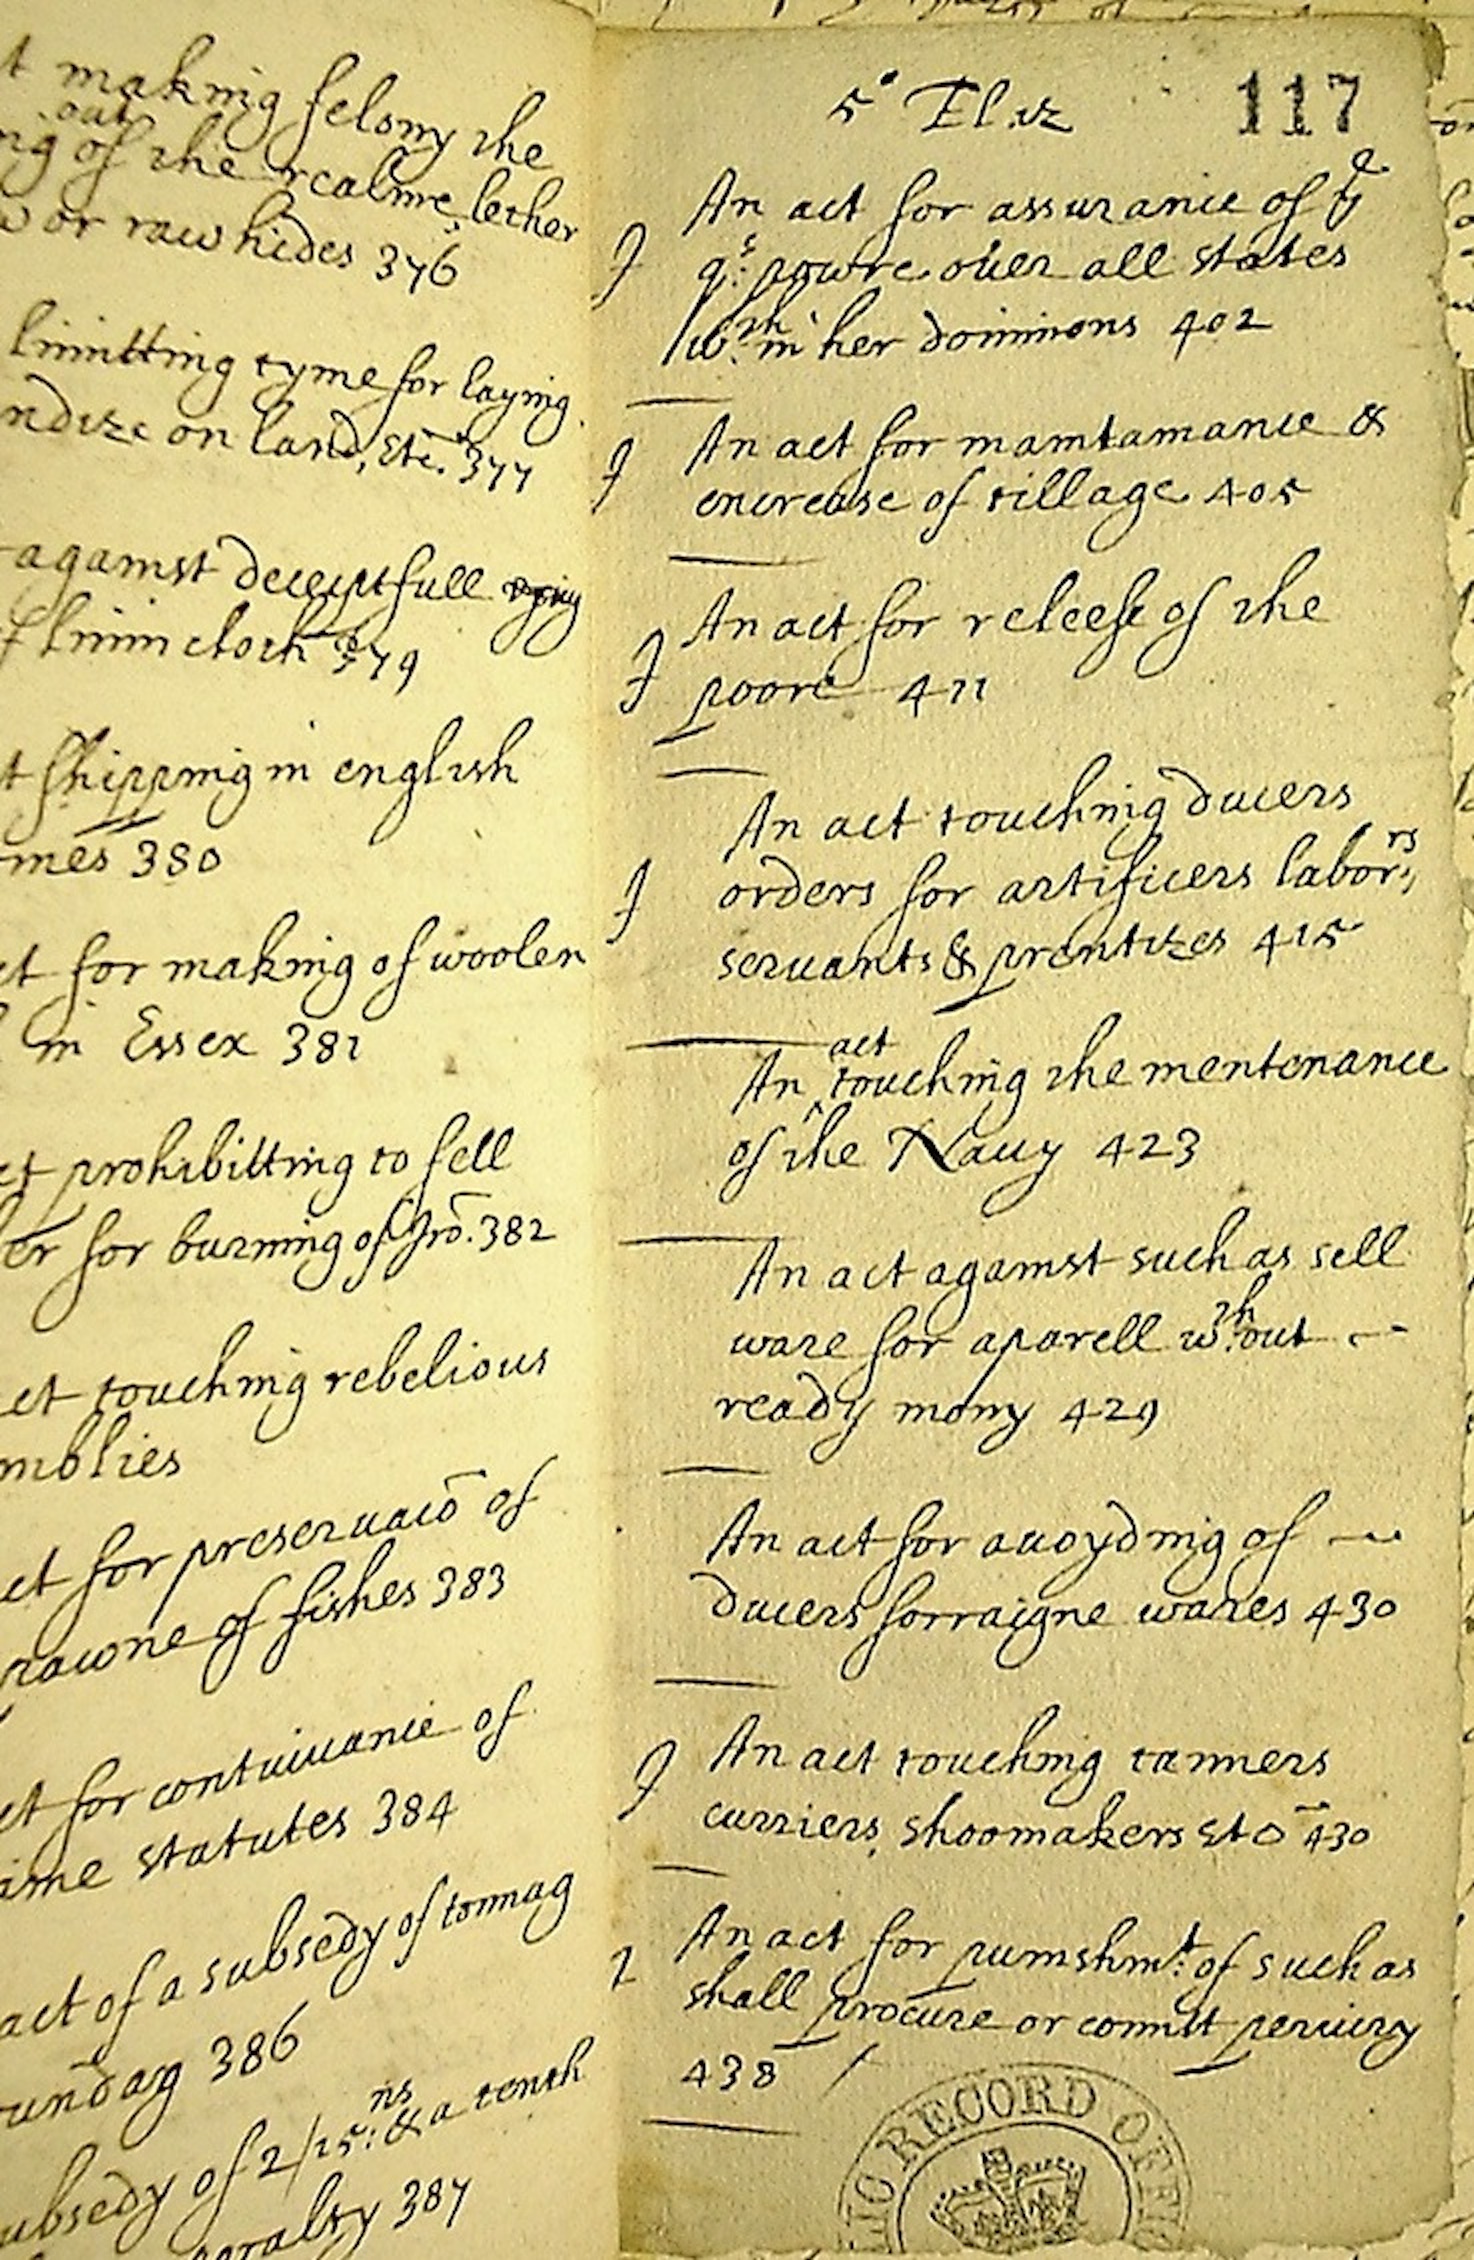 t making felony the
out
ng of the realme, lether
w or raw hides 376
limitting tyme for laying
ndize on land, etc. 377
against deceiptfull
f linin cloth 379
t shipping in english
mes 380
ct for making of woolen
in Essex 381
ct prohibitting to fell
er for burning of Iro. 382
ct touching rebelious
mblies
ct for preseruacō of
rawne of fishes 383
ct for contuiuance of
ame statutes 384
act of a subsedy of tonnag
oundag 386
ubsedy of 2/15:ns & a tenth
poralty 387
5° Eliz 117
An act for assurance of ye
qs: powre ouer all states
wth:in her dominions 402
An act for maintainance &
encrease of tillage 405
An act for releefe of the
poore 411
An act touching diuers
orders for artificers laborrs,
seruants & prentizes 415
An act touching the mentenance
of the Nauy 423
An act against such as sell
ware for aparell wth:out
ready mony 429
An act for auoyding of
diuers forraigne wares 430
An act touching tanners
curriers, shoomakers etc 430
2 An act for punishmt: of such as
shall procure or comitt periury
438
PUBLIC RECORD OFFIC